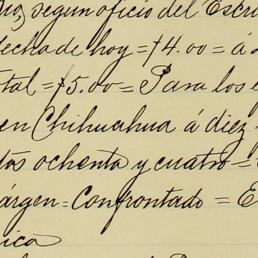 rio, segun oficio del Escri
fecha de hoy = $4.00 = á
tal = $5.00 = Para los e
en Chihuahua á diez
tos ochenta y cuatro =
márgen = Confrontado = E
ica